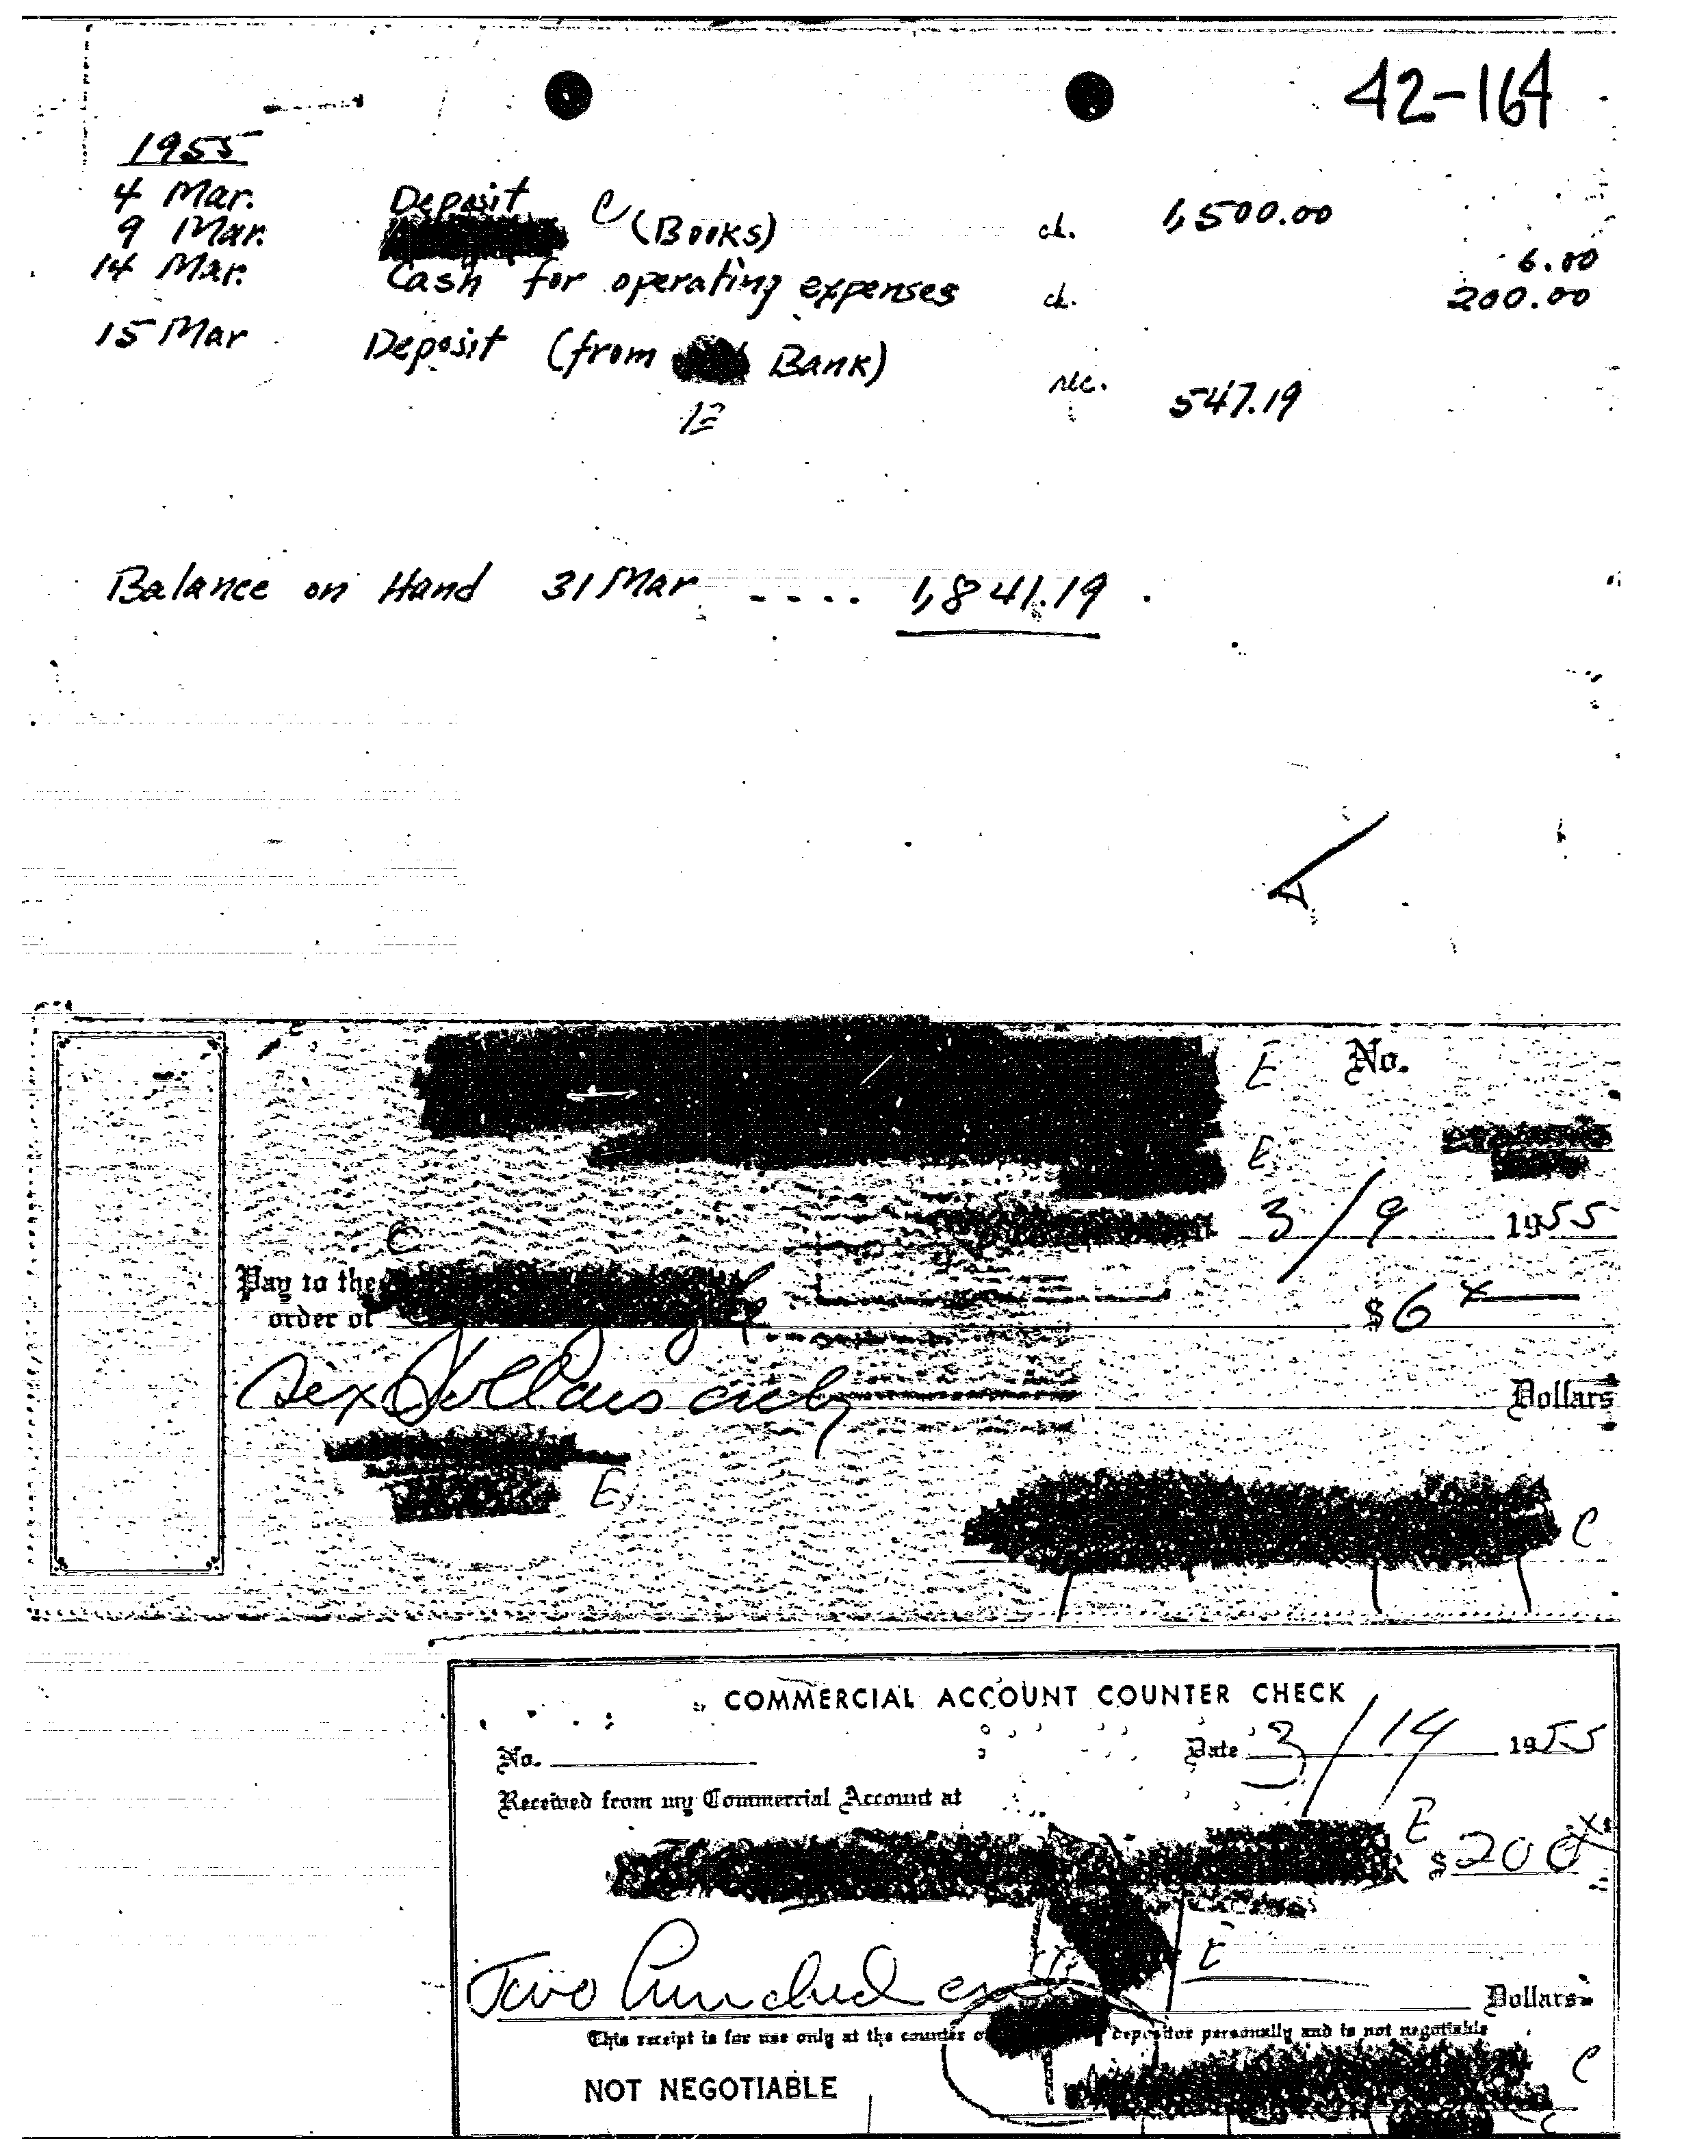 42-164
1955
4 Mar. Deposit 1,500.00
9 Mar. C (Books) ck. 6.00
14 Mar. Cash for operating expenses ck. 200.00
15 Mar Deposit (from Bank) rec. 547.19
Balance on Hand 31 Mar - - - - 1,841.19
E No.
E
3/9 1955
C
Pay to the
order of $6
Six Dollars only
Dollars
E
C
COMMERCIAL ACCOUNT COUNTER CHECK
No. Date 3/14 1955
Received from my Commercial Account at
E $200
E
Two Hundred
Dollars
This receipt is for use only at the counter depositor personally and is not negotiable
NOT NEGOTIABLE
C
C